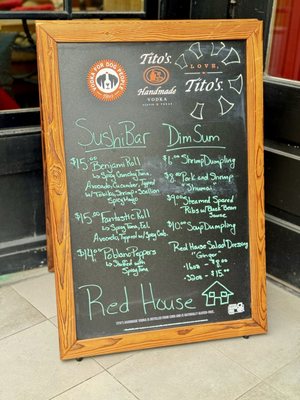 VODKA FOR DOG PEOPLE
Tito's
Handmade
VODKA
AUSTIN TEXAS
LOVE,
Tito's
Sushi Bar
$15.00 Benjami Roll
Spicy Crunchy Tuna
Avocado, Cucumber, Topped
w/ Tempura Shrimp + Scallion
Spicy Mayo
$15.00 Fantastic Roll
Spicy Tuna, Eel
Avocado, Topped w/ Spicy Crab
$14.00 Poblano Peppers
Stuffed with
Spicy Tuna
Dim Sum
$6.00 Shrimp Dumpling
$8.00 Pork and Shrimp
"Shumai"
$9.00 Steamed Spared
Ribs w/ Black Bean
Sauce
$10.00 Soup Dumpling
Red House Salad Dressing
"Ginger"
16oz - $9.00
32oz - $15.00
Red House